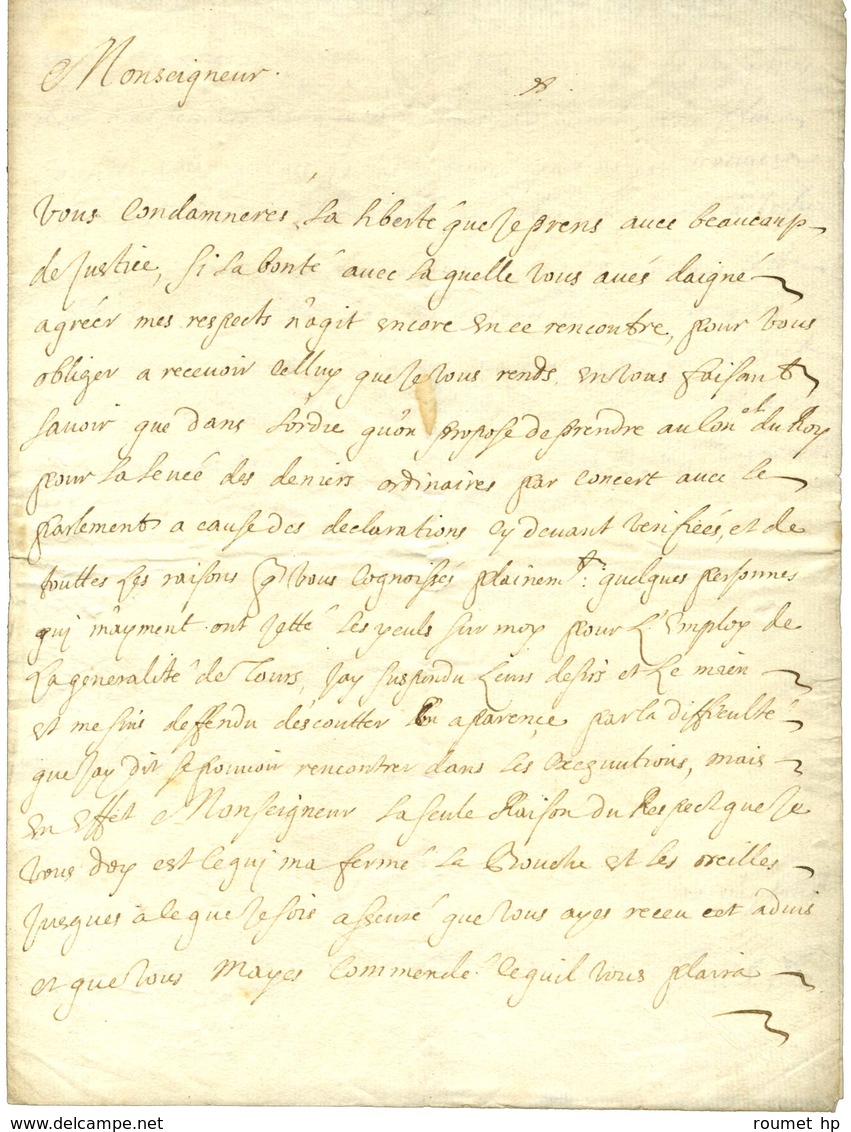 Monseigneur.
Vous Condamneres la liberté que Je prens avec beaucoup
de Justice, si la bonté avec laquelle vous avés daigné
agréer mes respects n'agit encore en ce rencontre, pour vous
obliger a recevoir celluy que Je vous rends en vous faisant
savoir que dans l'ordre qu'on propose de prendre au Con.el du Roy
pour la levée des deniers ordinaires par concert avec le
parlement a cause des declarations cy devant verifiées, et de
touttes les raisons q vous Cognoissés plainem.t: quelques personnes
qui m'ayment ont jetté les yeuls sur moy pour L'Employ de
La generalité de Tours, Jay suspendu Leurs desirs et Le mien
et me suis deffendu descoutter En aparence par la difficulté
que Jay dit se pouvoir rencontrer dans les execquutions, mais
en effét Monseigneur la seule Raison du Respect que Je
vous doy est ce qui ma fermé la Bouche et les oreilles
Jusques à ce que Je sois asseuré que vous ayes receu cet advis
et que vous Mayes Commendé ce quil vous plaira
www.delcampe.net
roumet hp